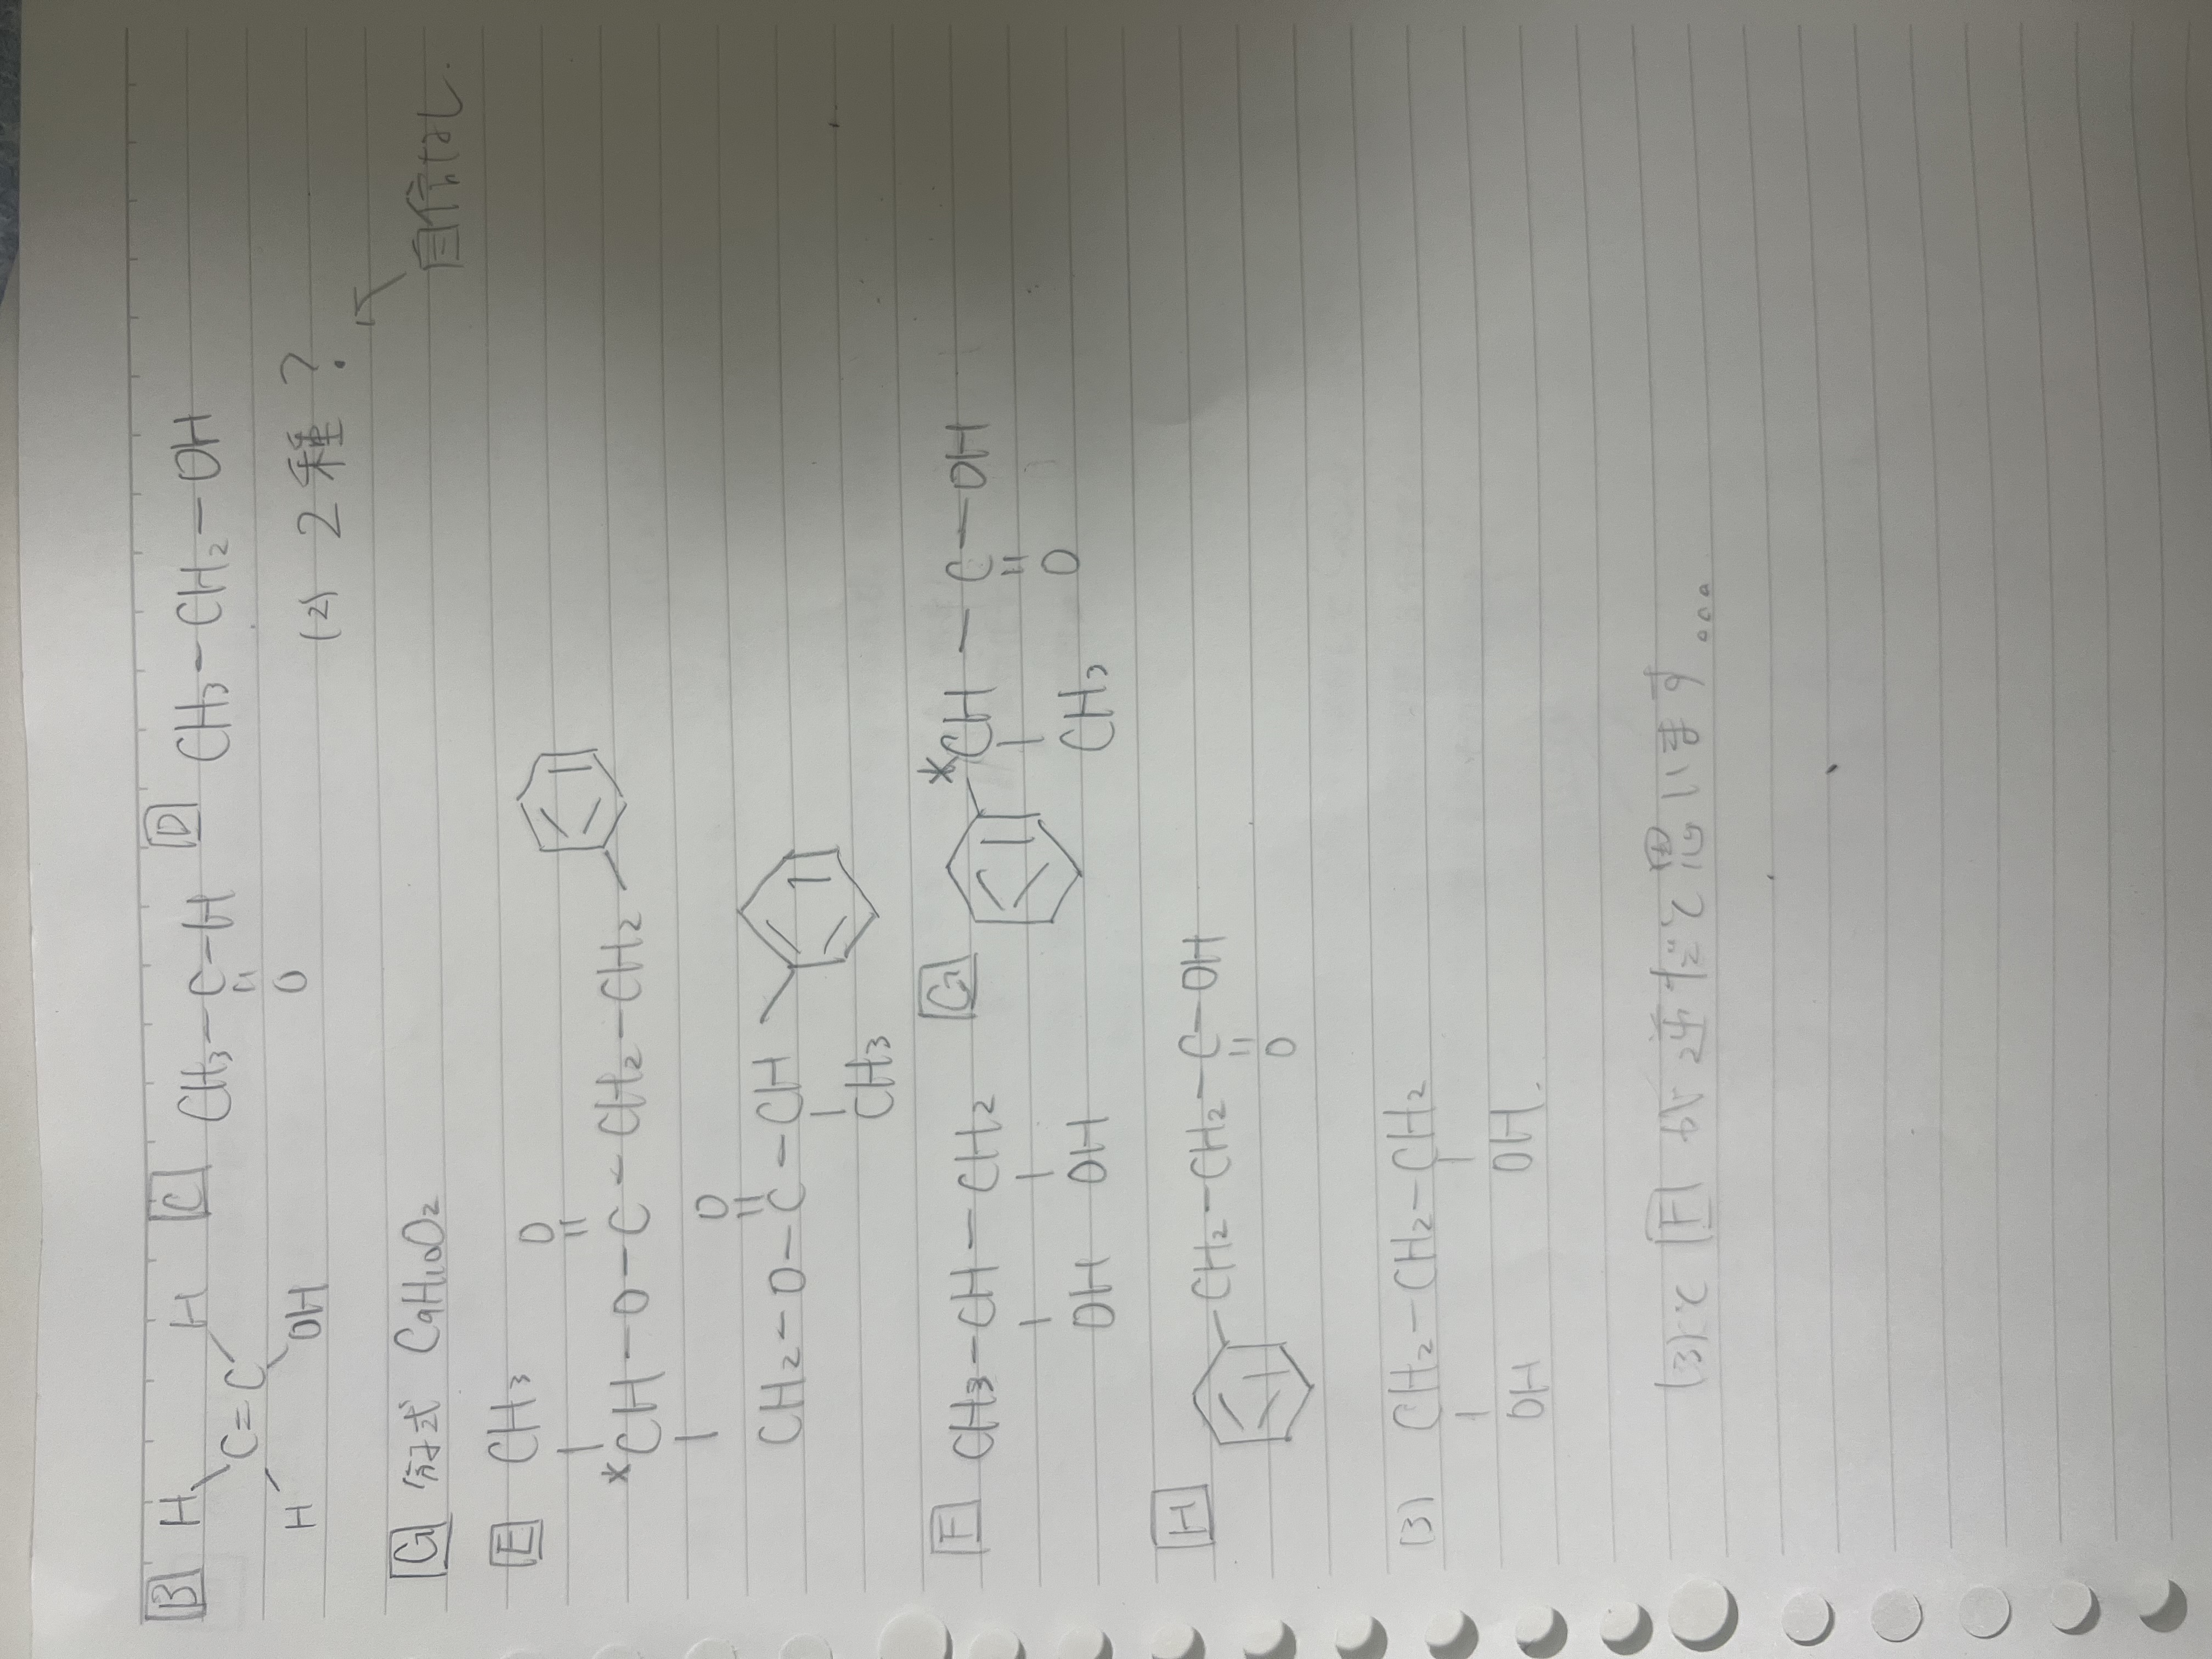 B H H C CH3-C-H D CH3-CH2-OH
C=C O
H OH (2) 2種?
自信なし
G 分子式 C9H10O2
E CH3 O
*CH-O-C-CH2-CH2
O
CH2-O-C-CH
CH3
F CH3-CH-CH2 G *CH-C-OH
OH OH CH3 O
H CH2-CH2-C-OH
O
(3) CH2-CH2-CH2
OH OH.
(3)と F が逆だと思います...